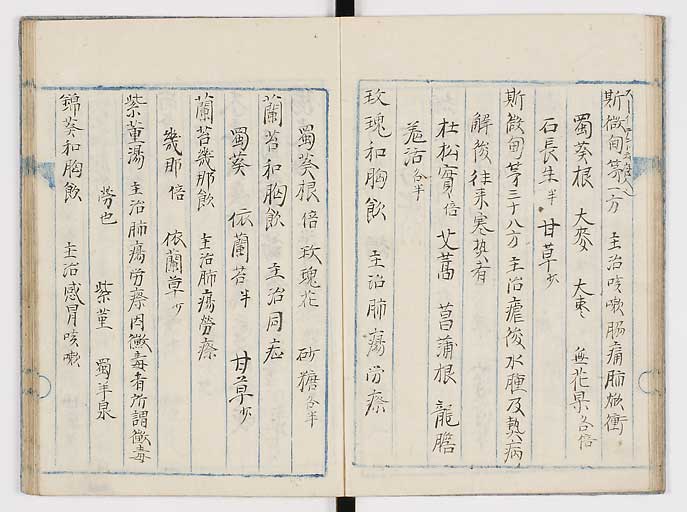 斯微甸第一方　主治咳嗽腸痛肺焮衝
蜀葵根　大麥　大棗　無花果各倍
石長生半　甘草少
斯微甸第三十八方　主治瘧後水腫及熱病
解後往来寒熱者
杜松實倍　艾葉　菖蒲根　龍膽
羌活各半
玫瑰和胸飲　主治肺瘍労瘵
蜀葵根倍　玫瑰花　砂糖各半
蘭苔和胸飲　主治同症
蜀葵　依蘭苔半　甘草少
蘭苔幾那飲　主治肺瘍勞瘵
幾那倍　依蘭草少
紫菫湯　主治肺瘍労瘵因黴毒者所謂黴毒
勞也　紫菫　蜀羊泉
錦葵和胸飲　主治感冒咳嗽